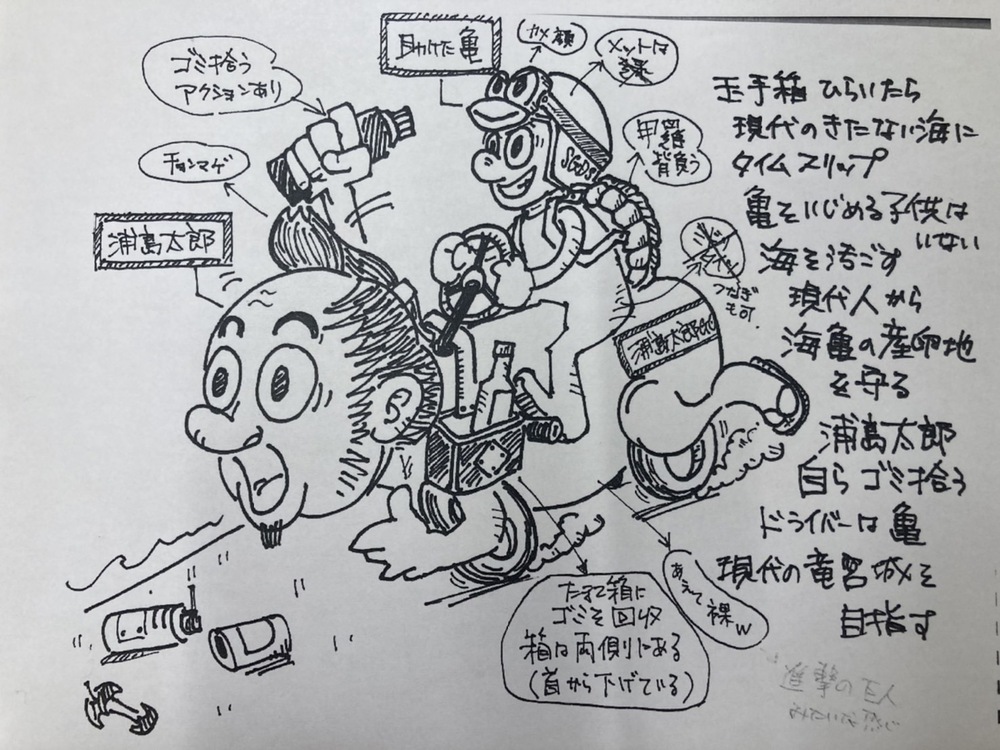 ゴミ拾う
アクションあり
チョンマゲ
浦島太郎
助けた亀
カメ顔
メットは
甲羅
背負う
SGDs
つなぎ
も可.
浦島太郎
たまて箱に
ゴミを回収
箱は両側にある
(首から下げている)
あえて裸w
玉手箱 ひらいたら
現代のきたない海に
タイムスリップ
亀をいじめる子供は
いない
海を汚ごす
現代人から
海亀の産卵地
を守る
浦島太郎
自らゴミ拾う
ドライバーは亀
現代の竜宮城を
目指す
進撃の巨人
みたいな感じ